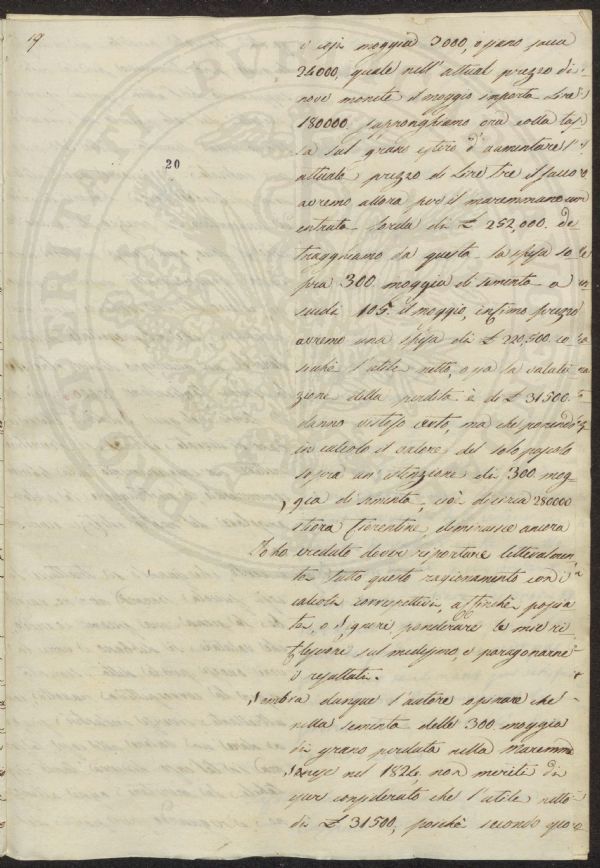 19
20
è cosi moggia 3000, o siano sacca
24000, quale nell'attual prezzo di
nove monete il moggio importa Lire
180000, supponghiamo ora colla tas
sa sul grano estero d'aumentare l'
attuale prezzo di Lire tre il sacco
avremo allora per il maremmano un'
entrata lorda di £ 252,000. de
tragghiamo da questa la spesa so
pra 300 moggia di sementa a
scudi 105. il moggio, infimo prezzo
avremo una spesa di £ 220,500. co
sicchè l'utile netto, o sia la valuta
zione della perdita è di £ 31500.
danno visteso certo, ma che ponendo
in calcolo il valore del solo pascolo
sopra un'estenzione di 300 mog
gia di sementa, cioè di circa 280000
stiora Fiorentine, diminuisce ancora
Io ho creduto dover riportare letteralmen
te tutto questo ragionamento con i
calcoli corrispettivi, affinchè possia
te, o Signori ponderare le mie ri
flessioni sul medesimo, e paragonarne
i resultati.
Sembra dunque l'autore opinare che
nella sementa delle 300 moggia
di grano perduta nella Maremma
Sanese nel 1826, non meriti di
esser considerato che l'utile netto
di £ 31500, poichè secondo